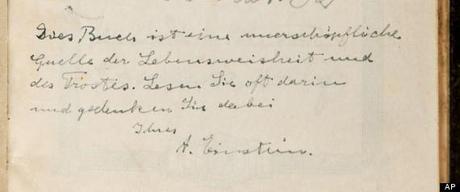 Dies Buch ist eine unerschöpfliche
Quelle der Lebensweisheit und
des Trostes. Lesen Sie oft darin
und gedenken Sie dabei
Ihres
A. Einstein.
AP